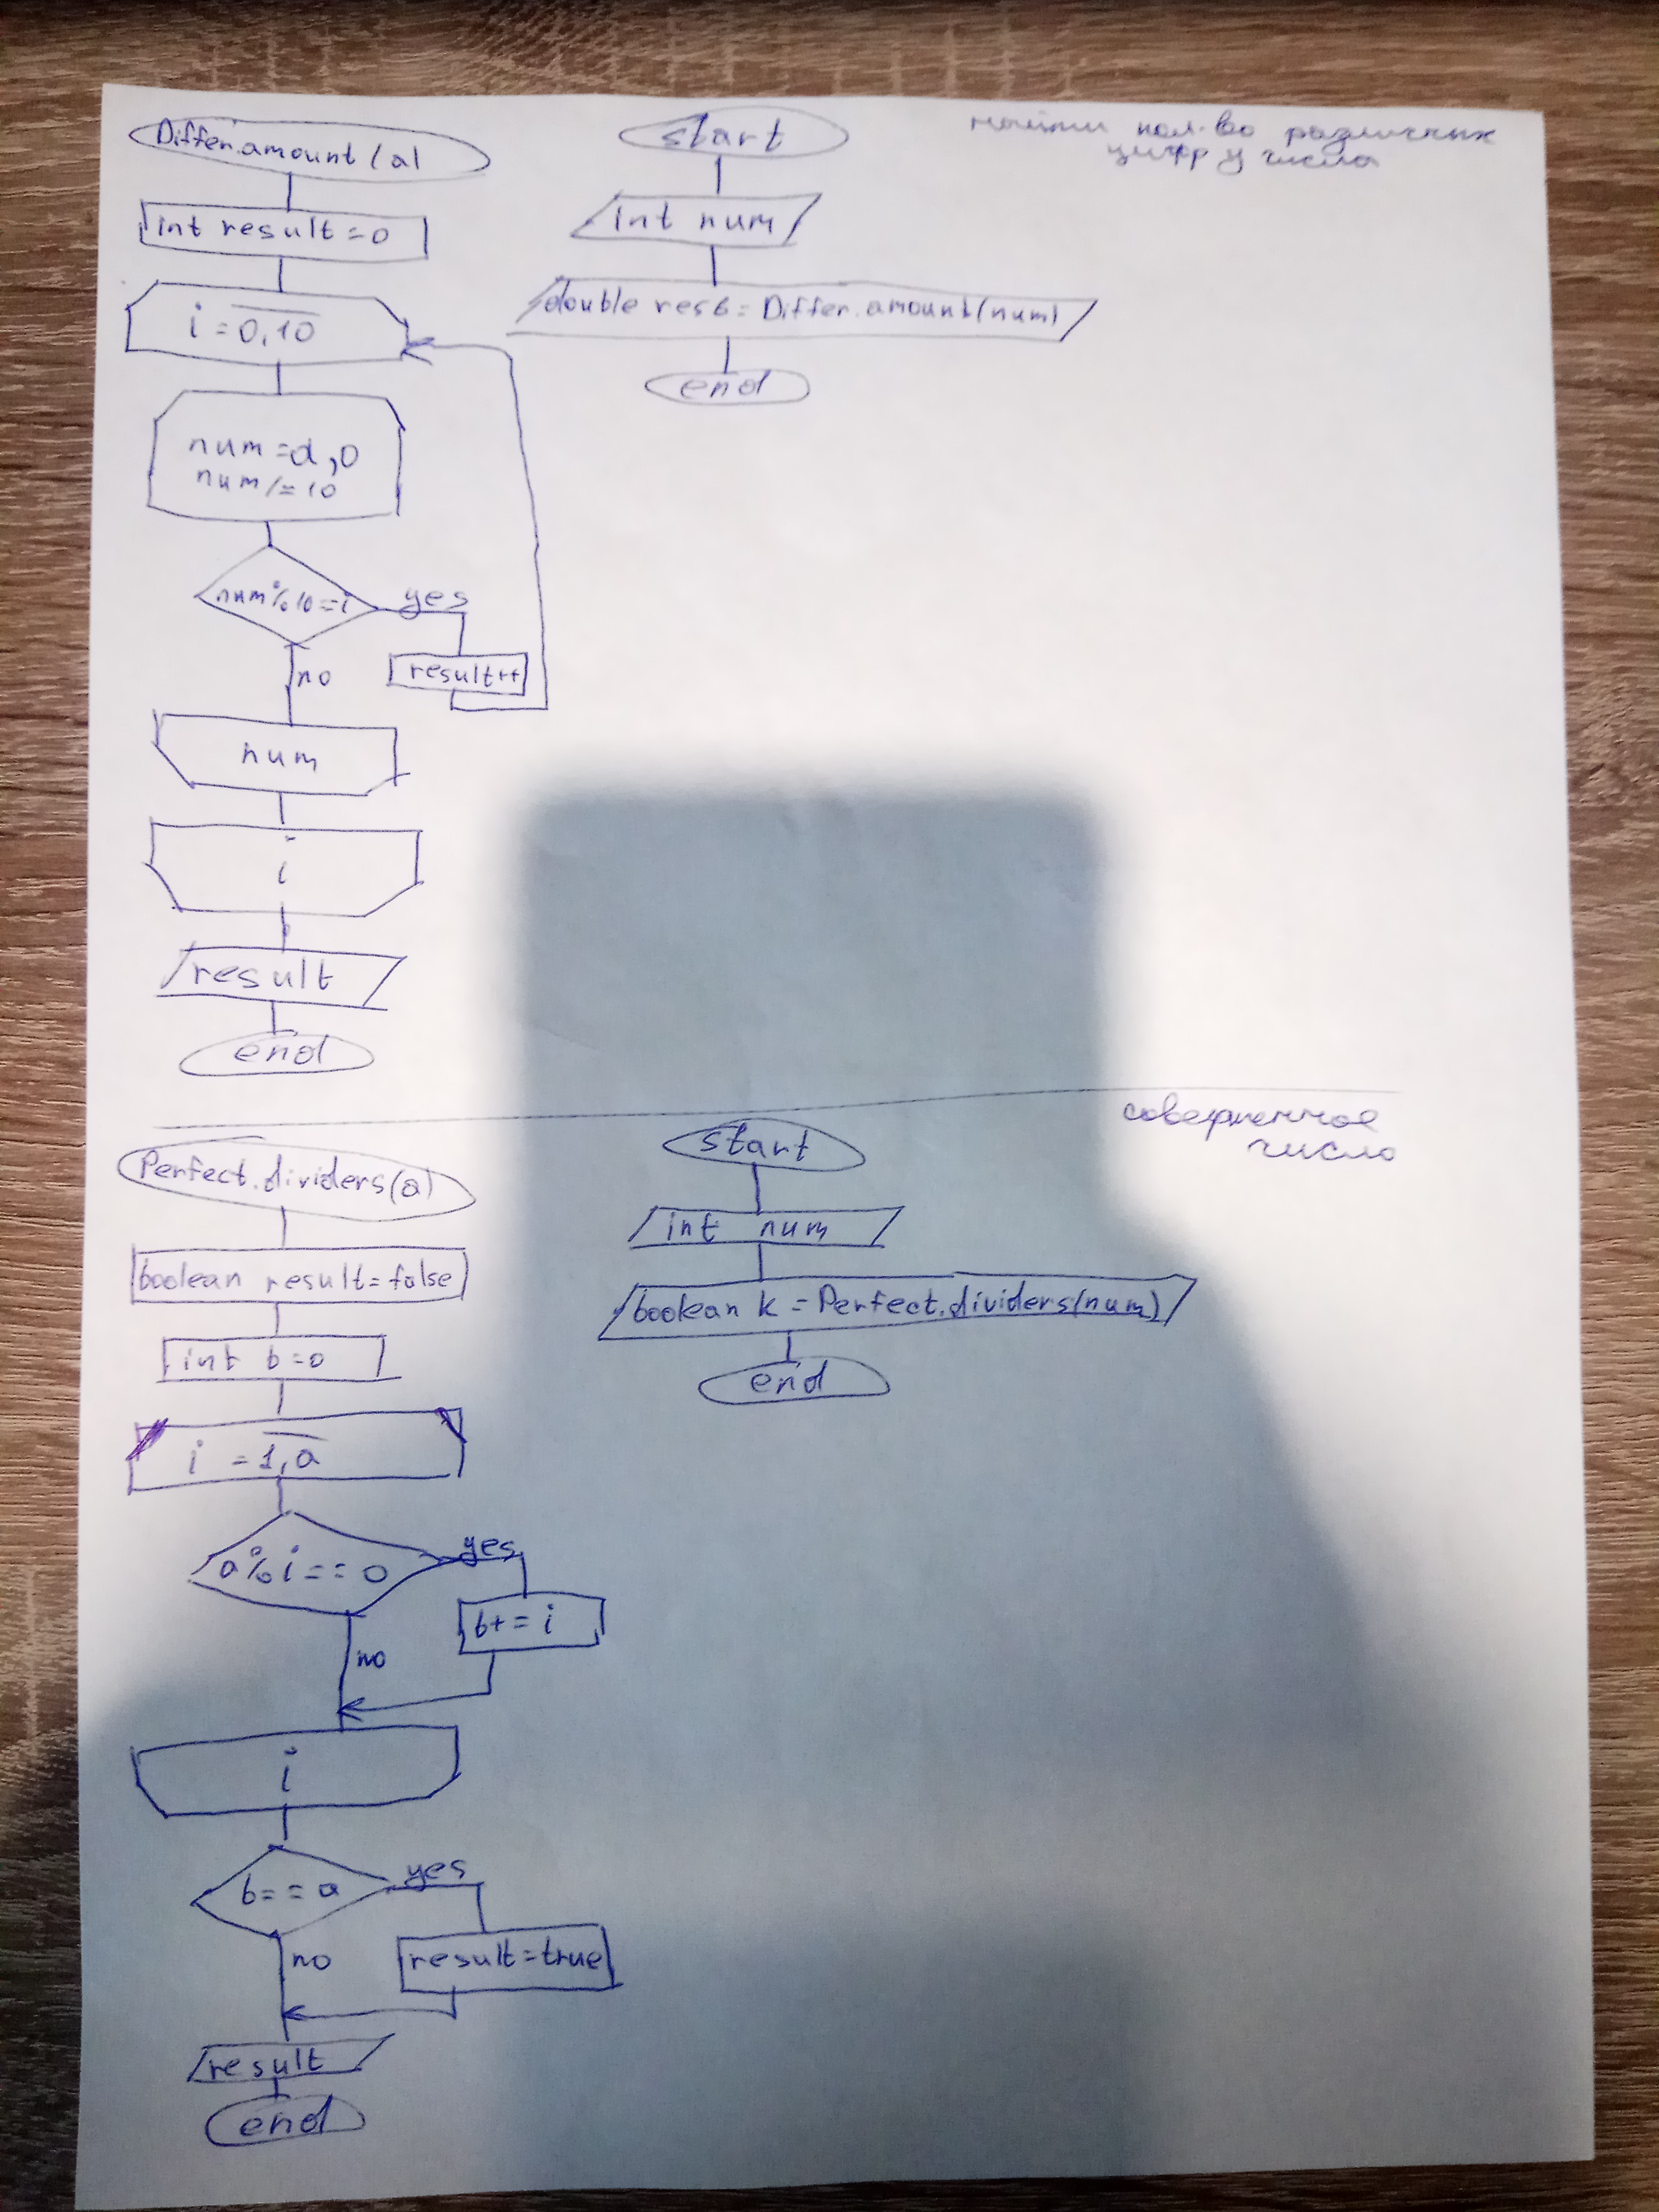 Differ.amount(a)
int result=0
i=0,10
num=a,0
num/=10
num%10=i
yes
result++
no
num
i
result
end
start
int num
double res6=Differ.amount(num)
end
найти кол-во различных
цифр у числа
Perfect.dividers(a)
boolean result=false
int b=0
i=1,a
a%i==0
yes
b+=i
no
i
b==a
yes
result=true
no
result
end
start
int num
boolean k=Perfect.dividers(num)
end
совершенное
число